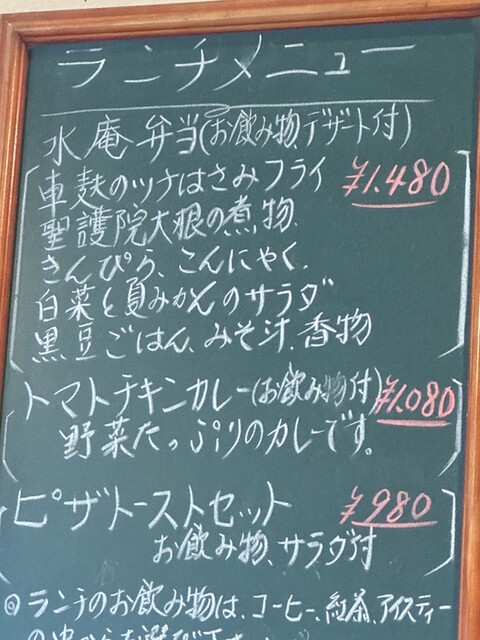 ランチメニュー
水庵弁当(お飲み物、デザート付)
車麸のツナはさみフライ ¥1.480
聖護院大根の煮物、
きんぴら、こんにゃく、
白菜と夏みかんのサラダ
黒豆ごはん、みそ汁、香物
トマトチキンカレー(お飲み物付) ¥1.080
野菜たっぷりのカレーです。
ピザトーストセット ¥980
お飲み物、サラダ付
◎ランチのお飲み物は、コーヒー、紅茶、アイスティー